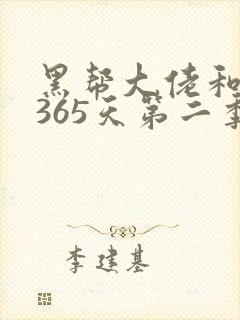 黑帮大佬和
365天第二季
李建基